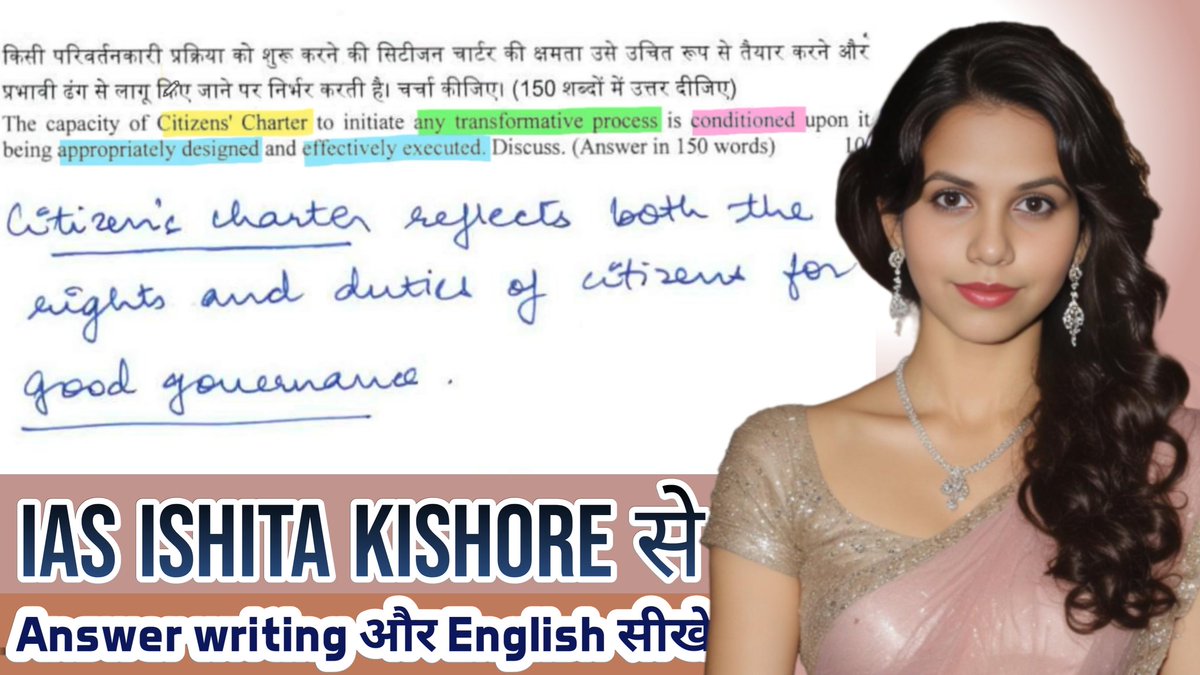 किसी परिवर्तनकारी प्रक्रिया को शुरू करने की सिटीजन चार्टर की क्षमता उसे उचित रूप से तैयार करने और
प्रभावी ढंग से लागू किए जाने पर निर्भर करती है। चर्चा कीजिए। (150 शब्दों में उत्तर दीजिए)
The capacity of Citizens' Charter to initiate any transformative process is conditioned upon it
being appropriately designed and effectively executed. Discuss. (Answer in 150 words) 10
Citizen's charter reflects both the
rights and duties of citizens for
good governance.
IAS ISHITA KISHORE से
Answer writing और English सीखे